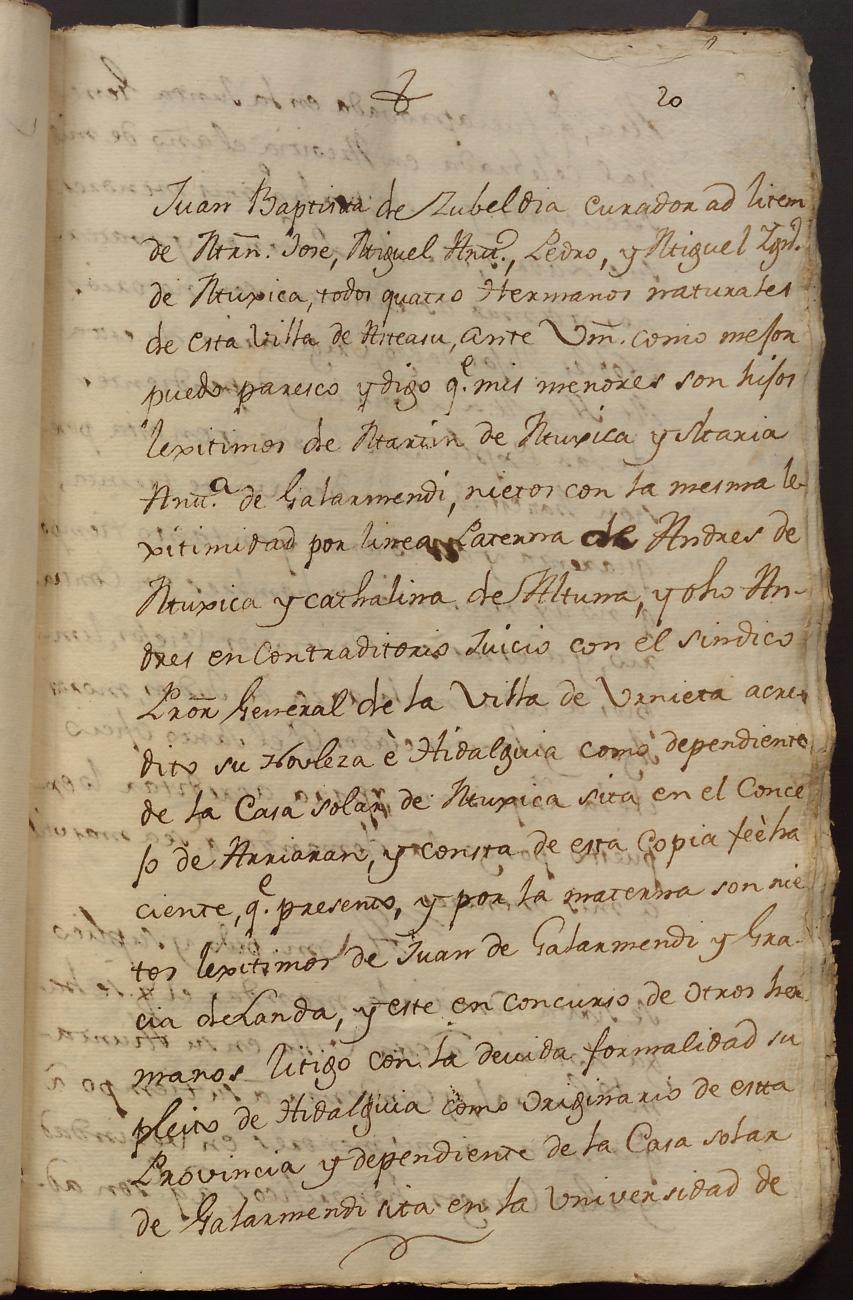 20
Juan Baptista de Zubeldia curador ad litem
de Mrn. Jose, Miguel Antt.º, Pedro, y Miguel Ygn.º
de Muxica, todos quatro Hermanos naturales
de esta Villa de Asteasu, ante Vm. como mejor
puedo paresco y digo q.e mis menores son hijos
lexitimos de Martin de Muxica y Maria
Antt.a de Galarmendi, nietos con la mesma le-
xitimidad por linea Paterna de Andres de
Muxica y Cathalina de Altuna, y dho An-
dres en Contraditorio Juicio con el sindico
Pror General de la Villa de Urnieta acre-
dito su Novleza è Hidalguia como dependiente
de la Casa solar de Muxica sita en el Conce
jo de Arriaran, y consta de esta Copia feèha
ciente, q.e presento, y por la materna son nie
tos lexitimos de Juan de Galarmendi y Gra-
cia de Landa, y este en concurso de otros her
manos litigo con la devida formalidad su
pleito de Hidalguia como originario de estta
Provincia y dependiente de la Casa solar
de Galarmendi sita en la Universidad de